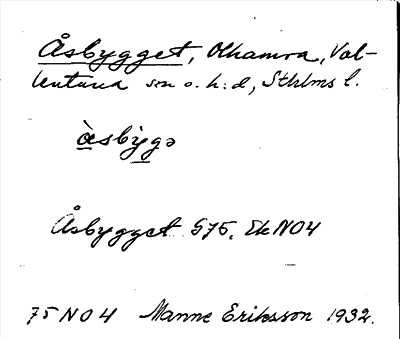 Åsbygget, Olhamra, Val-
lentuna sn o. h:d, Sthlms l.
àsbỳgə
Åsbygget G75, Ek NO4
75 NO4 Manne Eriksson 1932.